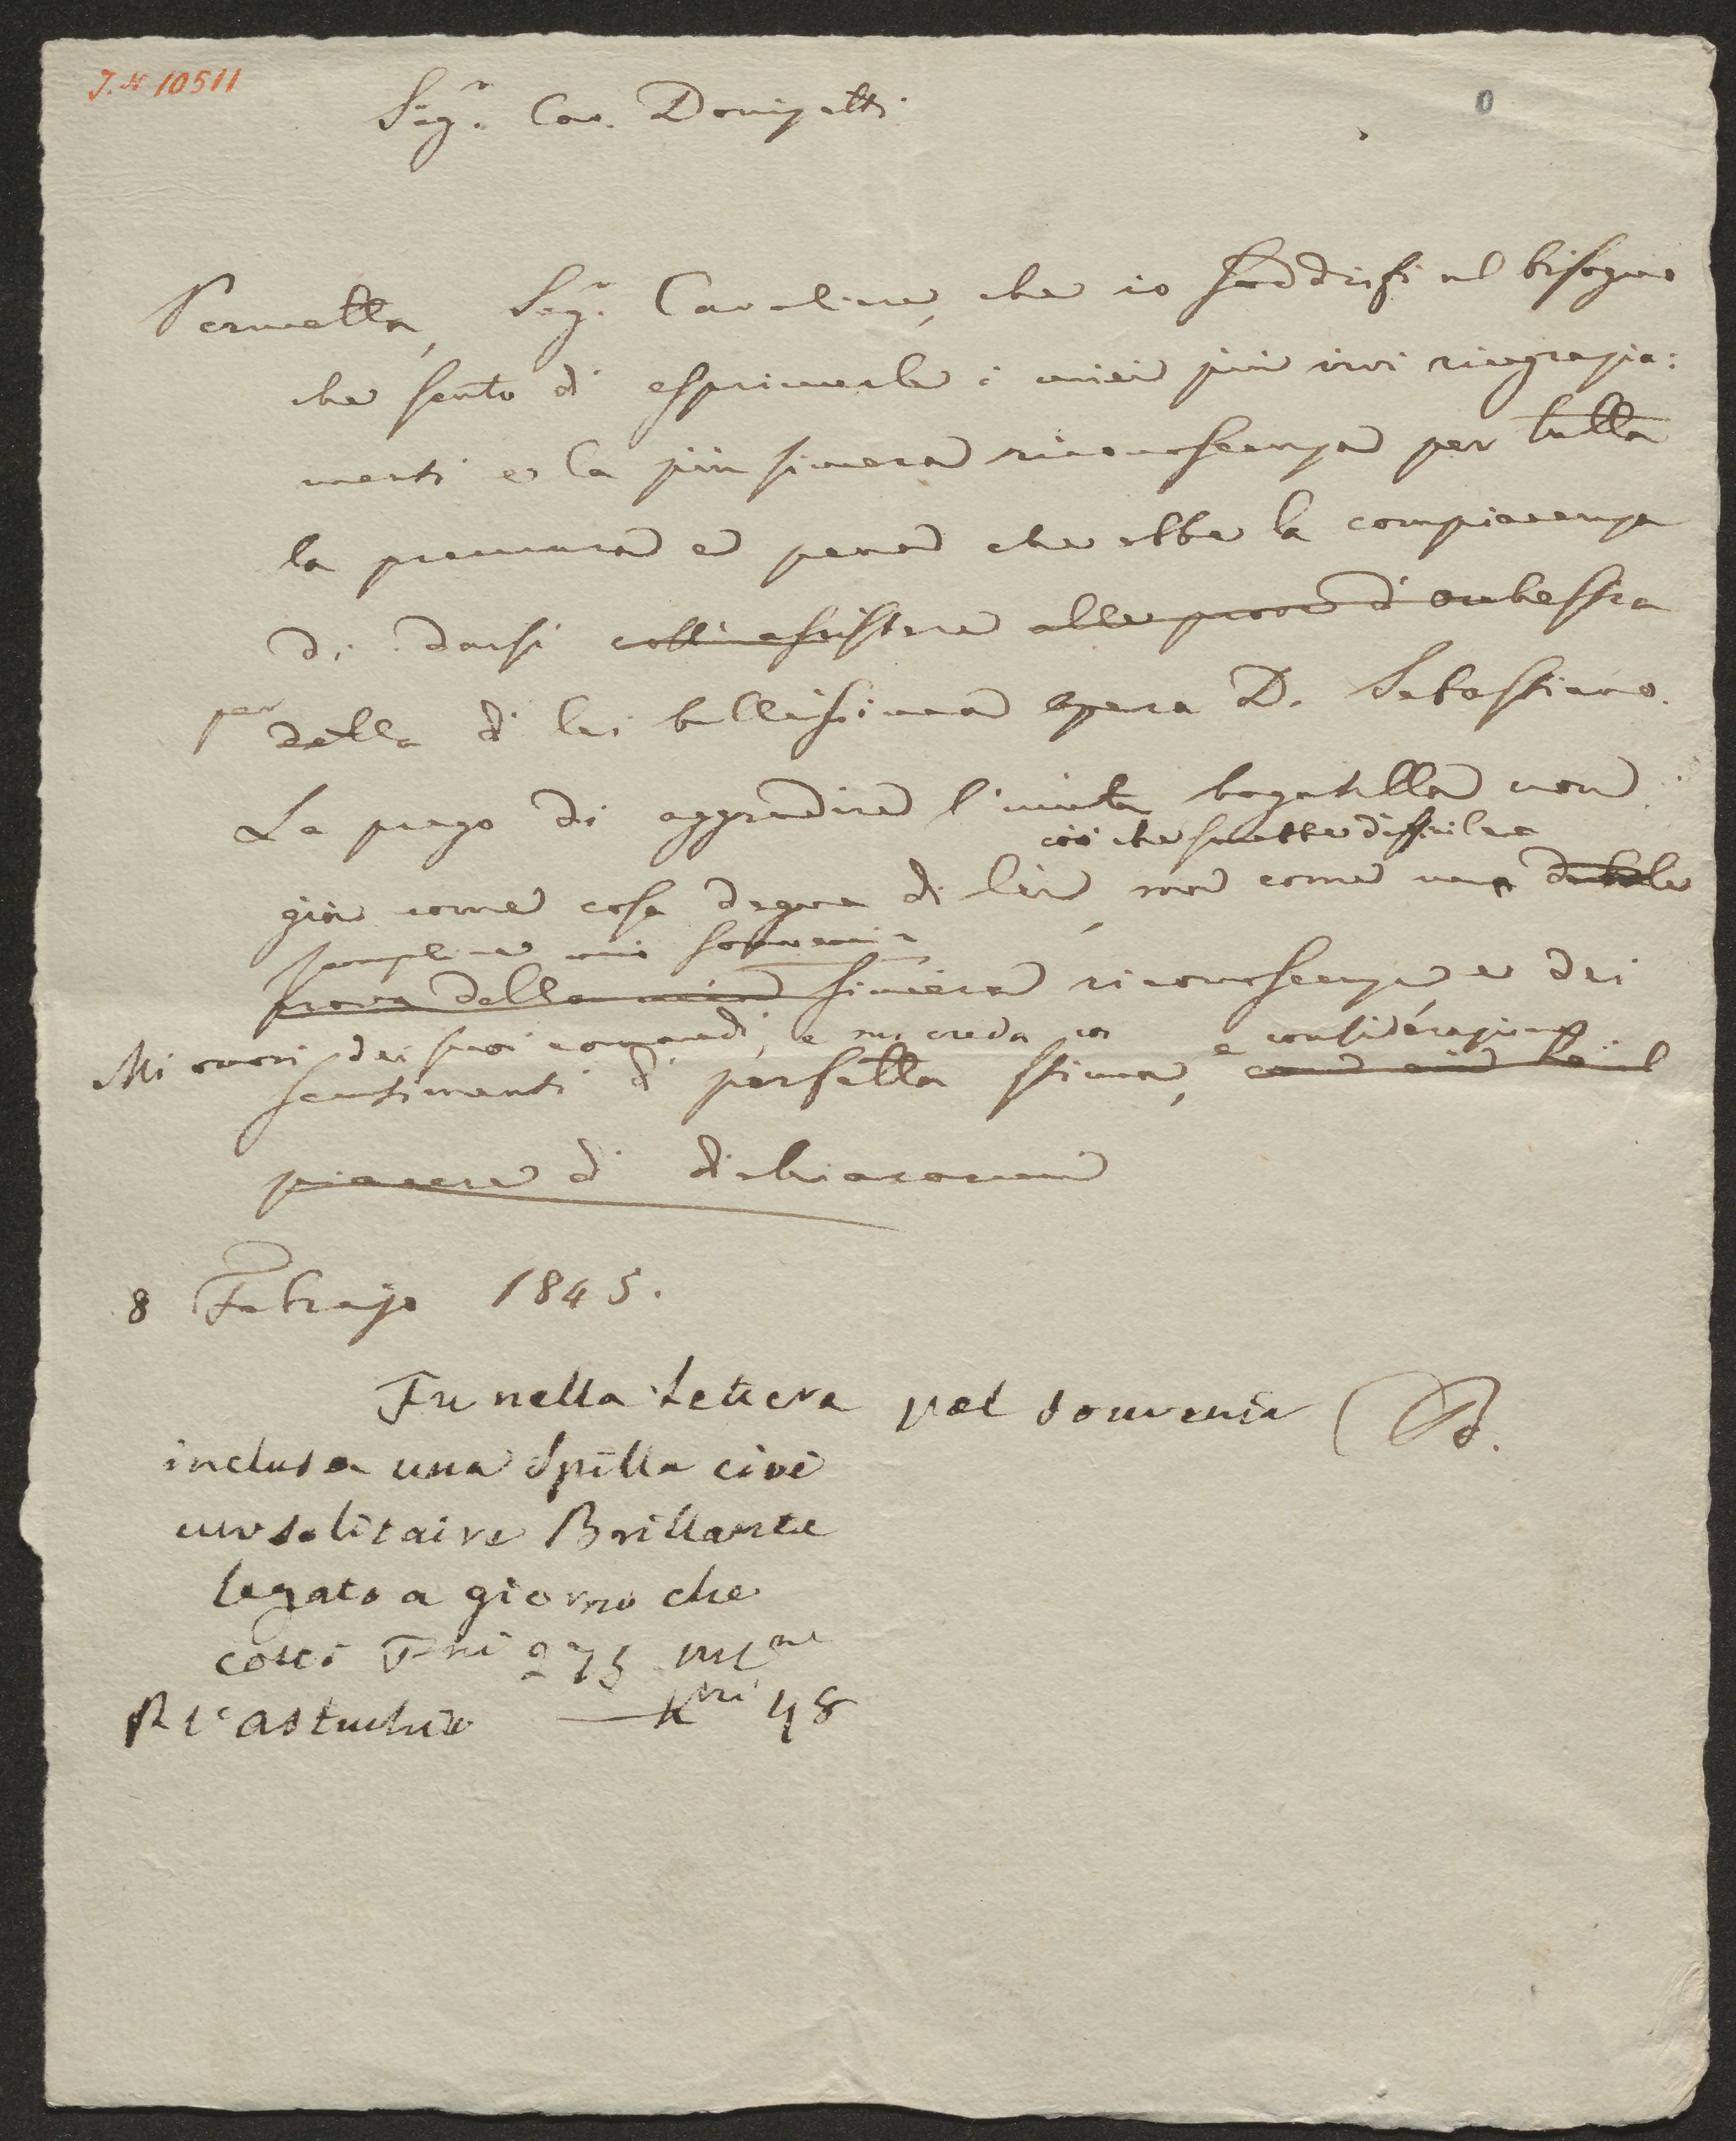 J. N 10511
0
Sig.r Cav. Donizetti
Permetta, Sig.r Cavaliere, che io soddisfi al bisogno
che sento di esprimerle i miei più vivi ringrazia:
menti e la più sincera riconoscenza per tutta
la premura e pena che ebbe la compiacenza
di darsi coll'assistere alle prove d'orchestra
per della di lei bellissima opera D. Sebastiano.
La prego di aggradire l'unita bagatella non
ciò che sarebbe difficile
già come cosa degna di lei, ma come una debole
semplice mio souvenir
prova della mia sincera riconoscenza e dei
Mi onori dei suoi comandi, e mi creda con e considerazione
sentimenti di perfetta stima, il
piacere di dichiararmi
8 Febrajo 1845.
Fu nella Lettera pel souvenir
inclusa una Spilla cioè
uno solitaire Brillante
legato a giorno che
costò Fni 275
l'astuchio Kni 48